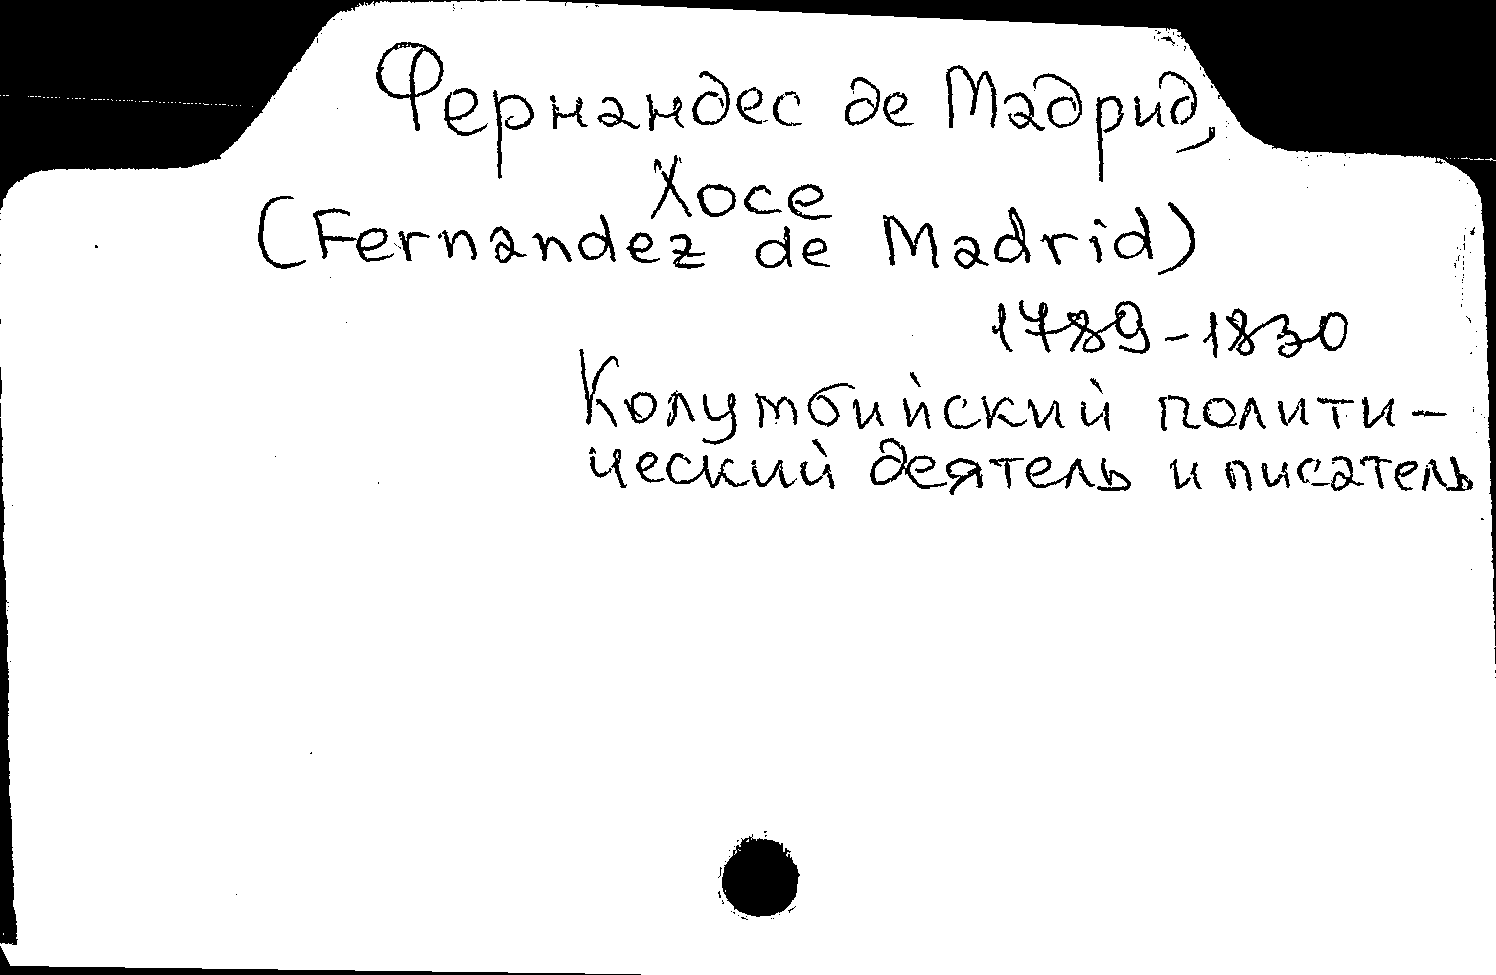 Фернандес де Мадрид,
Хосе
(Fernandez de Madrid)
1789-1830
Колумбийский полити-
ческий деятель и писатель